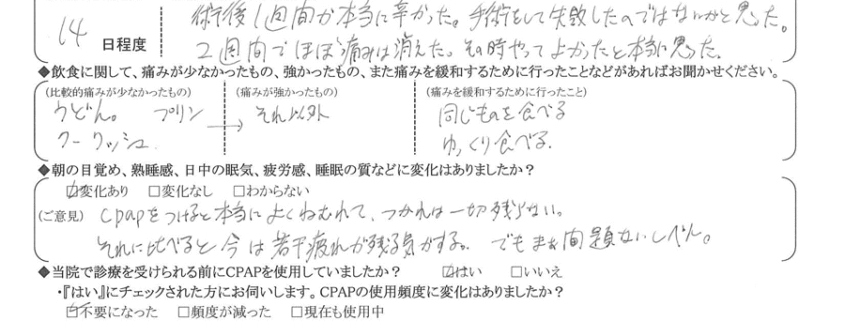 術後1週間が本当に辛かった。手術をして失敗したのではないかと思った。
14 日程度 2週間でほぼ痛みは消えた。その時やってよかったと本当に思った.
◆飲食に関して、痛みが少なかったもの、強かったもの、また痛みを緩和するために行ったことなどがあればお聞かせください。
(比較的痛みが少なかったもの) (痛みが強かったもの) (痛みを緩和するために行ったこと)
うどん。 プリン → それ以外 同じものを食べる
クーリッシュ. ゆっくり食べる.
◆朝の目覚め、熟睡感、日中の眠気、疲労感、睡眠の質などに変化はありましたか?
☑変化あり □変化なし □わからない
(ご意見) cpapをつけると本当によくねむれて、つかれは一切残らない。
それに比べると今は若干疲れが残る気がする。 でもまあ問題ないレベル。
◆当院で診療を受けられる前にCPAPを使用していましたか? ☑はい □いいえ
・『はい』にチェックされた方にお伺いします。CPAPの使用頻度に変化はありましたか?
☑不要になった □頻度が減った □現在も使用中